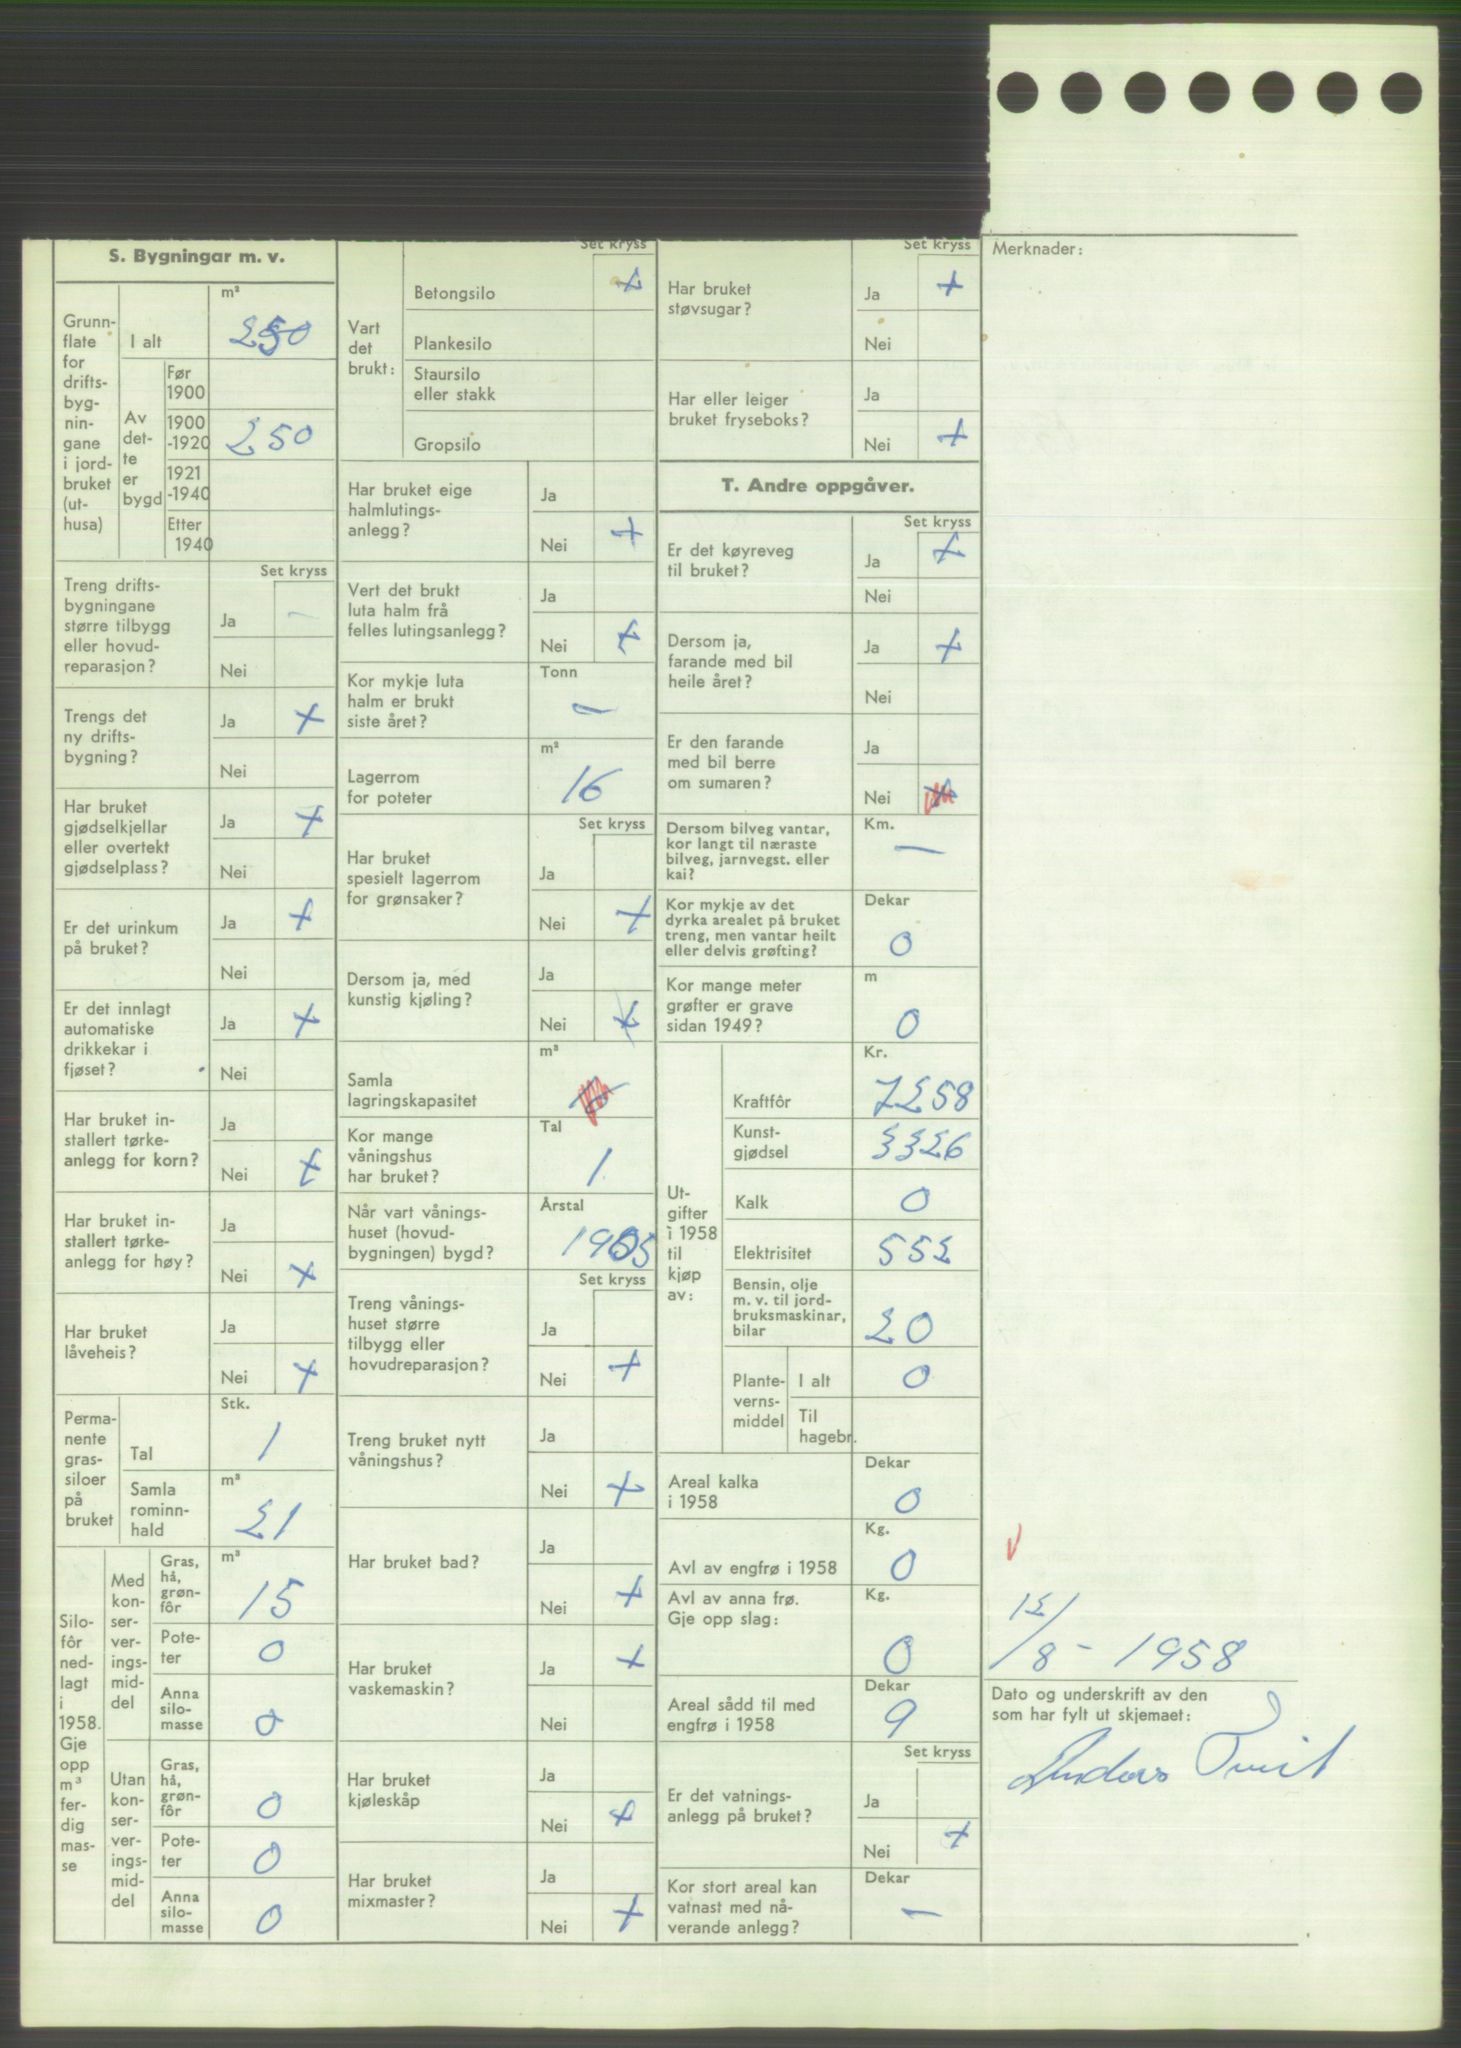 S. Bygningar m. v.
Grunn-
flate
for
drifts-
byg-
nin-
gane
i jord-
bruket
(ut-
husa)
I alt
m²
250
Av
det-
te
er
bygd
Før
1900
1900
-1920
250
1921
-1940
Etter
1940
Set kryss
Treng drifts-
bygningane
større tilbygg
eller hovud-
reparasjon?
Ja —
Nei
Trengs det
ny drifts-
bygning?
Ja +
Nei
Har bruket
gjødselkjellar
eller overtekt
gjødselplass?
Ja +
Nei
Er det urinkum
på bruket?
Ja +
Nei
Er det innlagt
automatiske
drikkekar i
fjøset?
Ja +
Nei
Har bruket in-
stallert tørke-
anlegg for korn?
Ja
Nei +
Har bruket in-
stallert tørke-
anlegg for høy?
Ja
Nei +
Har bruket
låveheis?
Ja
Nei +
Perma-
nente
gras-
siloer
på
bruket
Stk.
Tal 1
m³
Samla
rominn-
hald
21
Silo-
fôr
ned-
lagt
i
1958.
Gje
opp
m³
fer-
dig
mas-
se
Med
kon-
ser-
ver-
ings-
mid-
del
m³
Gras,
hå,
grøn-
fôr
15
Pote-
ter
0
Anna
silo-
masse
0
Utan
kon-
ser-
ver-
ings-
mid-
del
Gras,
hå,
grøn-
fôr
0
Pote-
ter
0
Anna
silo-
masse
0
Set kryss
Vart
det
brukt:
Betongsilo +
Plankesilo
Staursilo
eller stakk
Gropsilo
Har bruket eige
halmlutings-
anlegg?
Ja
Nei +
Vert det brukt
luta halm frå
felles lutingsanlegg?
Ja
Nei +
Kor mykje luta
halm er brukt
siste året?
Tonn
—
Lagerrom
for poteter
m²
16
Set kryss
Har bruket
spesielt lagerrom
for grønsaker?
Ja
Nei +
Dersom ja, med
kunstig kjøling?
Ja
Nei +
Samla
lagringskapasitet
m³
Kor mange
våningshus
har bruket?
Tal
1
Når vart vånings-
huset (hovud-
bygningen) bygd?
Årstal
1905
Set kryss
Treng vånings-
huset større
tilbygg eller
hovudreparasjon?
Ja
Nei +
Treng bruket nytt
våningshus?
Ja
Nei +
Har bruket bad?
Ja
Nei +
Har bruket
vaskemaskin?
Ja +
Nei
Har bruket
kjøleskåp
Ja
Nei +
Har bruket
mixmaster?
Ja
Nei +
Set kryss
Har bruket
støvsugar?
Ja +
Nei
Har eller leiger
bruket fryseboks?
Ja
Nei +
T. Andre oppgåver.
Set kryss
Er det køyreveg
til bruket?
Ja +
Nei
Dersom ja,
farande med bil
heile året?
Ja +
Nei
Er den farande
med bil berre
om sumaren?
Ja
Nei +
Dersom bilveg vantar,
kor langt til næraste
bilveg, jarnvegst. eller
kai?
Km.
—
Kor mykje av det
dyrka arealet på bruket
treng, men vantar heilt
eller delvis grøfting?
Dekar
0
Kor mange meter
grøfter er grave
sidan 1949?
m
0
Ut-
gifter
i 1958
til
kjøp
av:
Kr.
Kraftfôr 7258
Kunst-
gjødsel
3326
Kalk 0
Elektrisitet 552
Bensin, olje
m. v. til jord-
bruksmaskinar,
bilar
20
Plante-
verns-
middel
I alt 0
Til
hagebr.
Areal kalka
i 1958
Dekar
0
Avl av engfrø i 1958
Kg.
0
Avl av anna frø.
Gje opp slag:
Kg.
0
Areal sådd til med
engfrø i 1958
Dekar
9
Set kryss
Er det vatnings-
anlegg på bruket?
Ja
Nei +
Kor stort areal kan
vatnast med nå-
verande anlegg?
Dekar
—
Merknader:
12/
/8 - 1958
Dato og underskrift av den
som har fylt ut skjemaet:
Anders